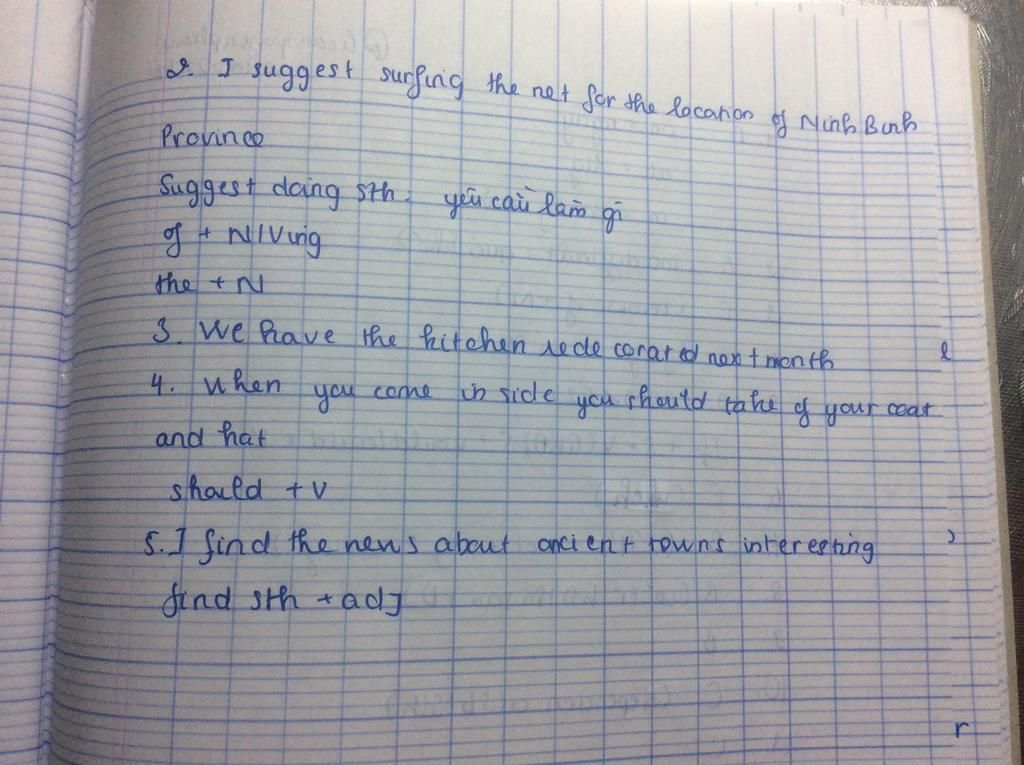 2. I suggest surfing the net for the location of Ninh Binh
Province
Suggest doing sth: yêu cầu làm gì
of + N/Ving
the + N
3. We have the kitchen redecorated next month
4. When you come inside you should take of your coat
and hat
should + V
5. I find the news about ancient towns interesting
find sth + adj